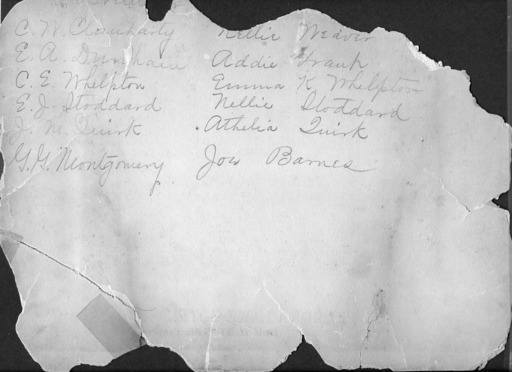 C. W. Clouharty Nellie Weaver
E. A. Dunham Addie Frank
C. E. Whelpton Emma K Whelpton
E. J. Stoddard Nellie Stoddard
J. M. Quirk Athelia Quirk
G. G. Montgomery Joe Barnes